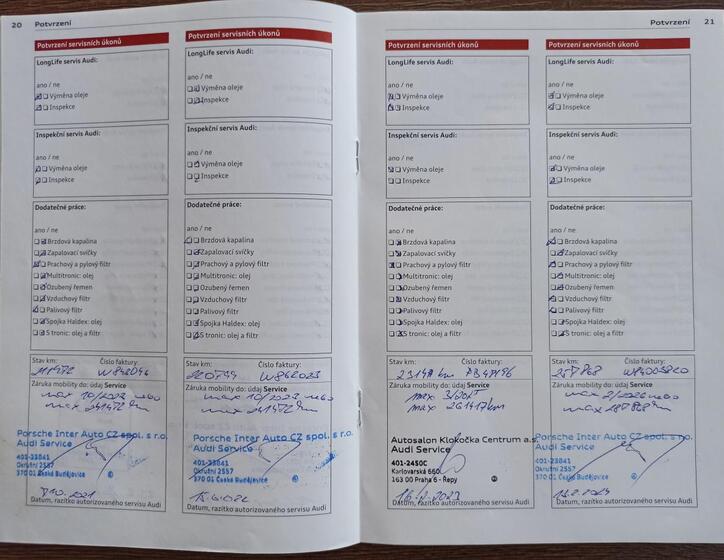 20 Potvrzení
Potvrzení servisních úkonů
LongLife servis Audi:
ano / ne
Výměna oleje
Inspekce
Inspekční servis Audi:
ano / ne
Výměna oleje
Inspekce
Dodatečné práce:
ano / ne
Brzdová kapalina
Zapalovací svíčky
Prachový a pylový filtr
Multitronic: olej
Ozubený řemen
Vzduchový filtr
Palivový filtr
Spojka Haldex: olej
S tronic: olej a filtr
Stav km: Číslo faktury:
Záruka mobility do: údaj Service
max 10/2022 nebo
max 241472 km
Porsche Inter Auto CZ spol. s r.o.
Audi Service
401-23841
Okružní 2557
370 01 České Budějovice
Datum, razítko autorizovaného servisu Audi
Potvrzení servisních úkonů
LongLife servis Audi:
ano / ne
Výměna oleje
Inspekce
Inspekční servis Audi:
ano / ne
Výměna oleje
Inspekce
Dodatečné práce:
ano / ne
Brzdová kapalina
Zapalovací svíčky
Prachový a pylový filtr
Multitronic: olej
Ozubený řemen
Vzduchový filtr
Palivový filtr
Spojka Haldex: olej
S tronic: olej a filtr
Stav km: Číslo faktury:
W862023
Záruka mobility do: údaj Service
max 10/2022 nebo
max 241472 km
Porsche Inter Auto CZ spol. s r.o.
Audi Service
401-23841
Okružní 2557
370 01 České Budějovice
Datum, razítko autorizovaného servisu Audi
Potvrzení 21
Potvrzení servisních úkonů
LongLife servis Audi:
ano / ne
Výměna oleje
Inspekce
Inspekční servis Audi:
ano / ne
Výměna oleje
Inspekce
Dodatečné práce:
ano / ne
Brzdová kapalina
Zapalovací svíčky
Prachový a pylový filtr
Multitronic: olej
Ozubený řemen
Vzduchový filtr
Palivový filtr
Spojka Haldex: olej
S tronic: olej a filtr
Stav km: Číslo faktury:
Záruka mobility do: údaj Service
max
max 261417 km
Autosalon Klokočka Centrum a.s.
Audi Service
401-2450C
Karlovarská 660
163 00 Praha 6 - Řepy
16.2.2023
Datum, razítko autorizovaného servisu Audi
Potvrzení servisních úkonů
LongLife servis Audi:
ano / ne
Výměna oleje
Inspekce
Inspekční servis Audi:
ano / ne
Výměna oleje
Inspekce
Dodatečné práce:
ano / ne
Brzdová kapalina
Zapalovací svíčky
Prachový a pylový filtr
Multitronic: olej
Ozubený řemen
Vzduchový filtr
Palivový filtr
Spojka Haldex: olej
S tronic: olej a filtr
Stav km: Číslo faktury:
257868
Záruka mobility do: údaj Service
max 2/2026 nebo
max 287868 km
Porsche Inter Auto CZ spol. s r.o.
Audi Service
401-23841
Okružní 2557
370 01 České Budějovice
Datum, razítko autorizovaného servisu Audi